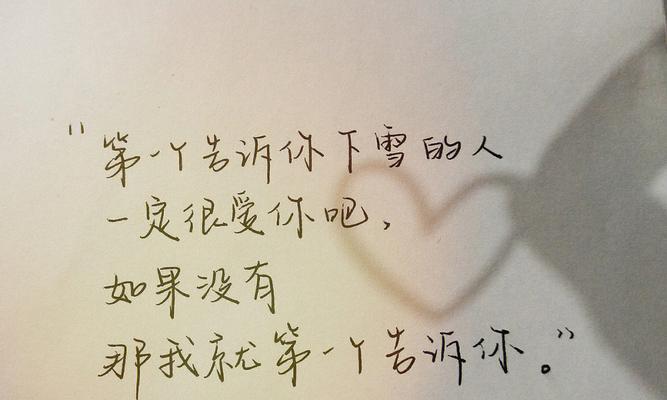 "第一个告诉你下雪的人
一定很爱你吧，
如果没有
那我就第一个告诉你。"